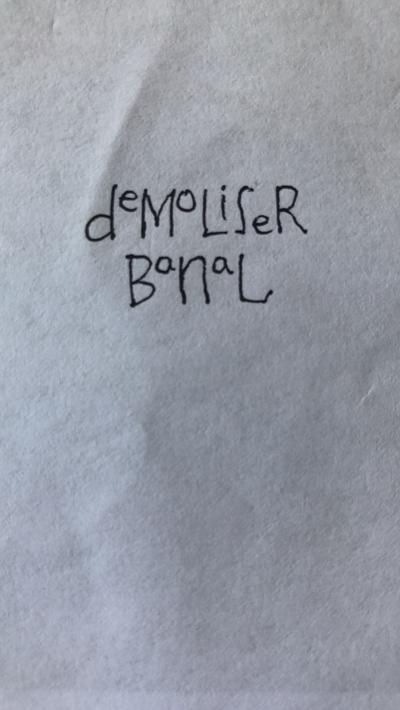 deMoLiSeR
BanaL